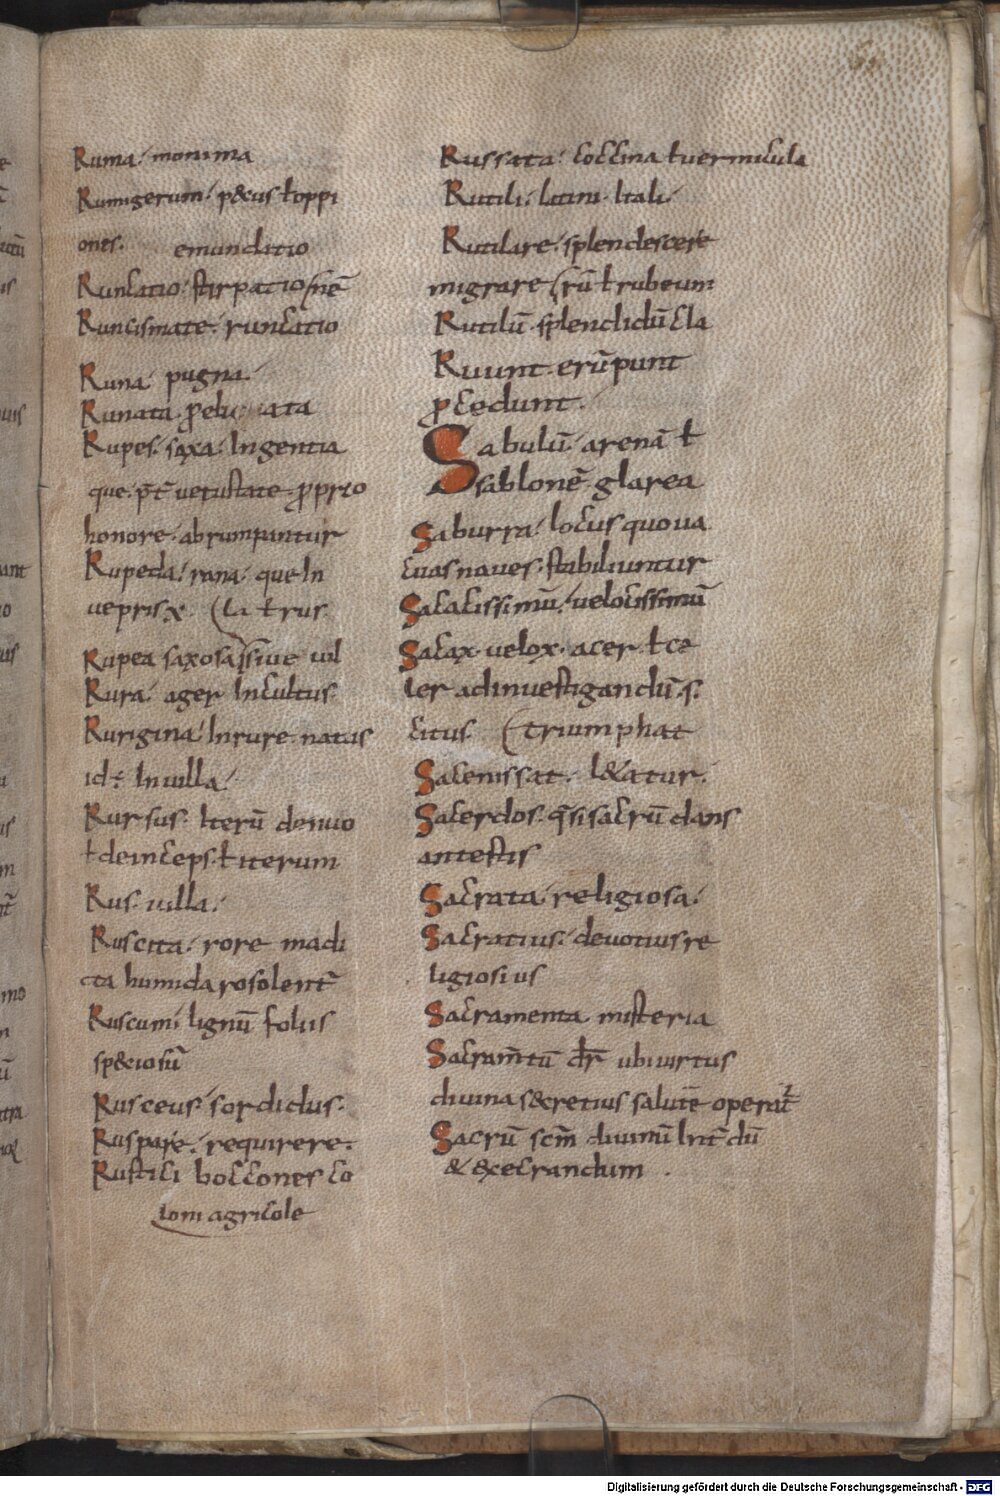 Ruma. monima
Rumigerum. p&us ł oppi
ones. emunditio
Runcatio. stirpatio (nē
Runcismate. runcatio
Runa pugna.
Runata. ata
Rupes. saxa. Ingentia
que. vetustate. ꝓprio
honore. abrumpuntur
Rupeda. rana. que In
veprisx. (la ł rus
Rupea saxosa sive vil
Rura. ager Incultus.
Rurigina. Inrure natus
id÷ In villa.
Rursus. Iterū denuo
ł deinceps. ł iterum
Rus. villa.
Ruscita. rore madi
cta humida rosolent
Ruscum lignū foliis
sp&iosū
Rusceus. sordidus.
Ruspare. requirere.
Rustici boccones co
loni agricole
Russata. coccina ł vermicula
Rutili. latini. Itali.
Rutilare. splendescere
migrare (rū ł rubeum
Rutilū. splendidū cla
Ruunt. erūpunt
ꝓcedunt.
Sabulū. arenā ł
sablonē. glarea
Saburra. locus quo va
cuas naves. stabiliuntur
Salacissimū. velocissimū
Salax. velox. acer. ł ce
ler ad investigandū. s.
citus. (triumphat
Sacenissat. l&atur.
Sacerdos. q̄si sacrū dans
antestis
Sacrata. religiosa.
Sacratius. devotius re
ligiosius
Sacramenta misteria
Sacram̄tū dr̄ ubi virtus
divina s&cretius salutē operat
Sacrū scm̄ divinū Int̄dū
& execrandum.
Digitalisierung gefördert durch die Deutsche Forschungsgemeinschaft - DFG